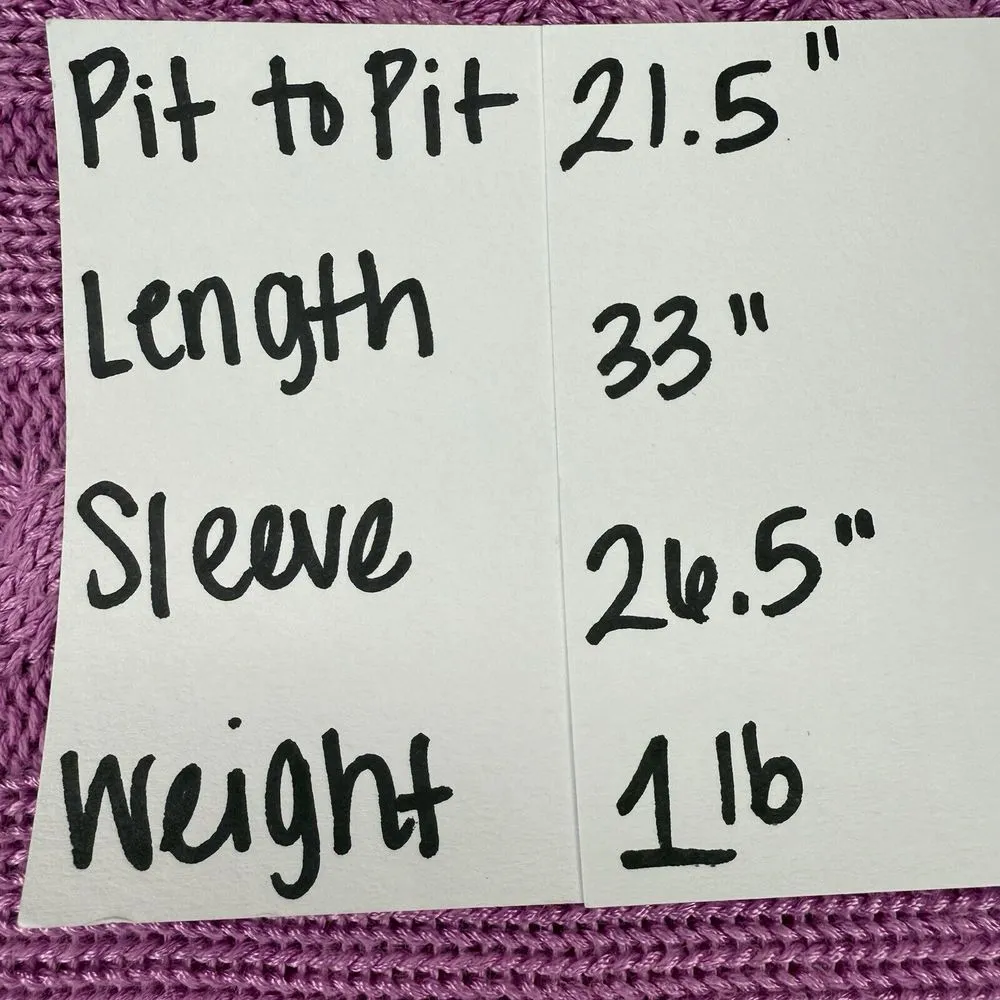 Pit to Pit 21.5"
Length 33"
Sleeve 26.5"
Weight 1 lb